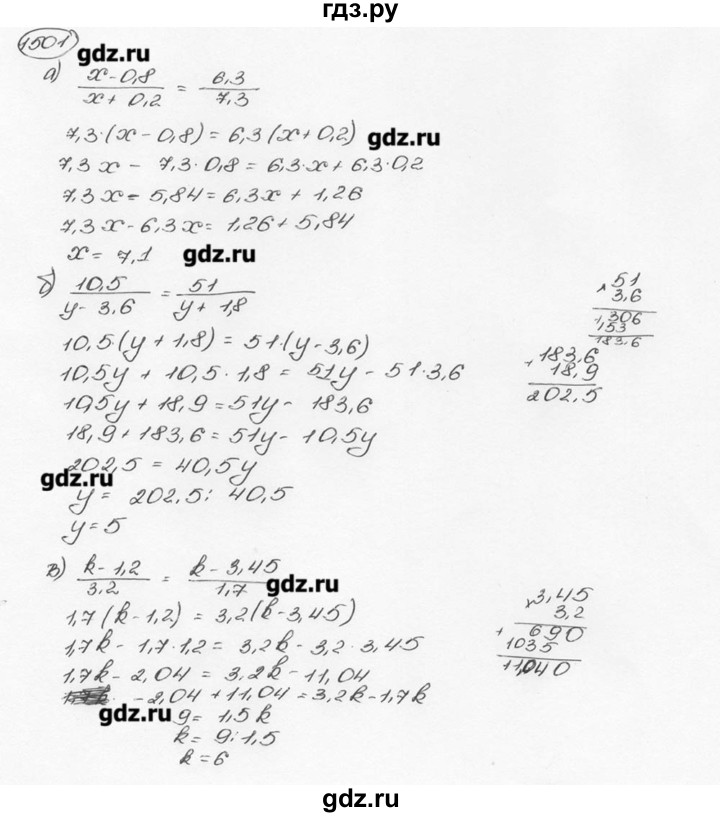 гдз.ру
1501
gdz.ru
а) x - 0,8 / x + 0,2 = 6,3 / 7,3
7,3·(x - 0,8) = 6,3(x + 0,2)
gdz.ru
7,3x - 7,3·0,8 = 6,3·x + 6,3·0,2
7,3x - 5,84 = 6,3x + 1,26
7,3x - 6,3x = 1,26 + 5,84
x = 7,1
gdz.ru
б) 10,5 / y - 3,6 = 51 / y + 1,8
10,5(y + 1,8) = 51·(y - 3,6)
10,5y + 10,5·1,8 = 51y - 51·3,6
10,5y + 18,9 = 51y - 183,6
18,9 + 183,6 = 51y - 10,5y
202,5 = 40,5y
gdz.ru
y = 202,5 : 40,5
y = 5
× 51
3,6
306
153
183,6
+ 183,6
18,9
202,5
в) k - 1,2 / 3,2 = k - 3,45 / 1,7
gdz.ru
1,7(k - 1,2) = 3,2(k - 3,45)
1,7k - 1,7·1,2 = 3,2k - 3,2·3,45
1,7k - 2,04 = 3,2k - 11,04
- 2,04 + 11,04 = 3,2k - 1,7k
gdz.ru
9 = 1,5k
k = 9 : 1,5
k = 6
× 3,45
3,2
+ 690
1035
11,040
gdz.ru